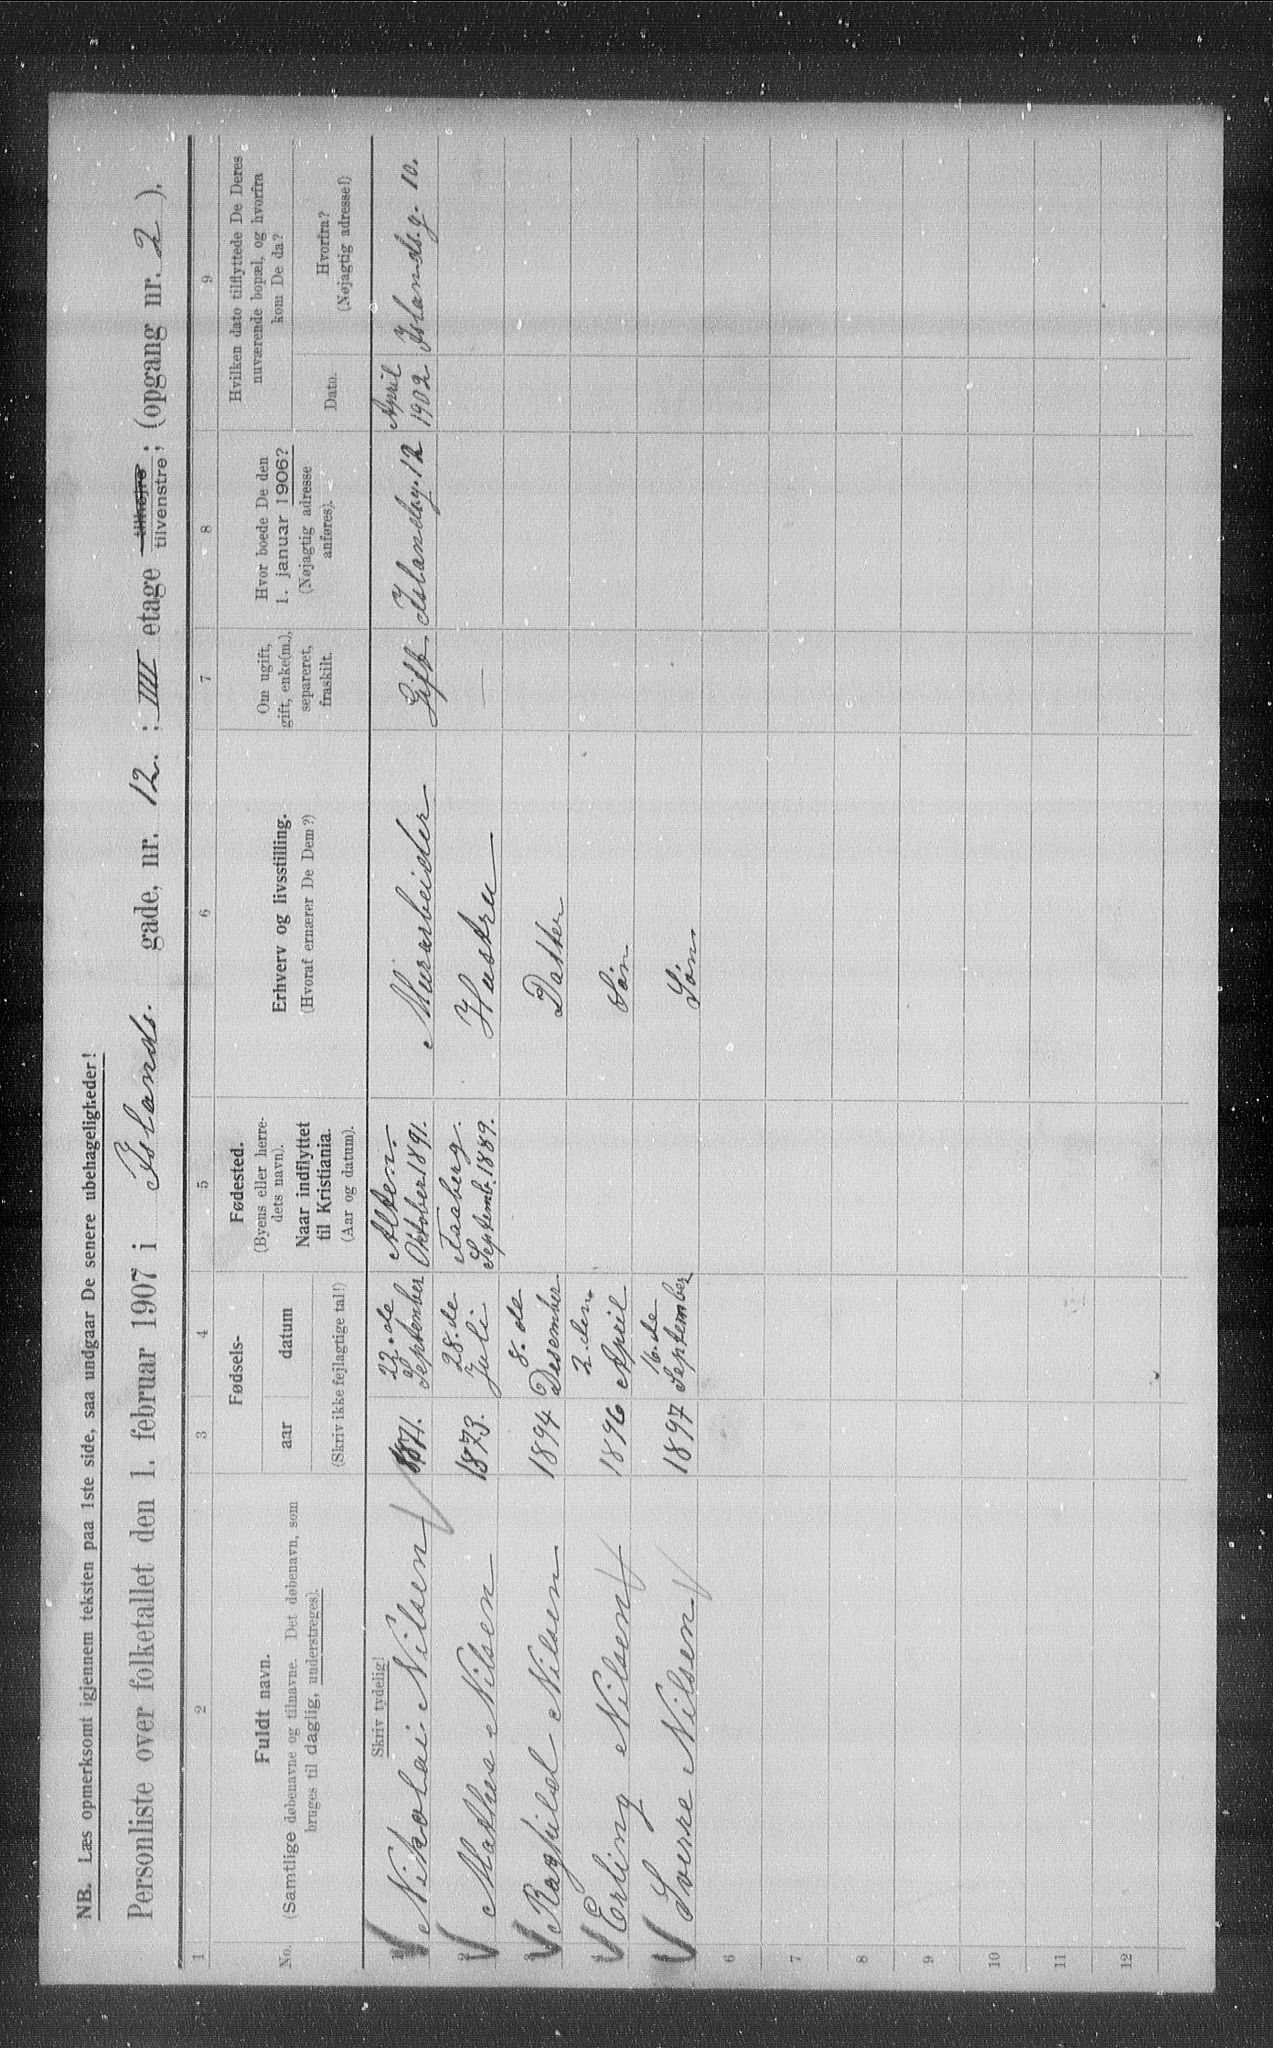 NB. Læs opmerksomt igjennem teksten paa 1ste side, saa undgaar De senere ubehageligheder!
Personliste over folketallet den 1. februar 1907 i Islands. gade, nr. 12. ; IIII etage tilhøjre tilvenstre; (opgang nr. 2 ).
1 2 3 4 5 6 7 8 9
No.
Fuldt navn.
(Samtlige døbenavne og tilnavne. Det døbenavn, som
bruges til daglig, understreges).
Fødsels-
aar datum
(Skriv ikke fejlagtige tal!)
Fødested.
(Byens eller herre-
dets navn).
Naar indflyttet
til Kristiania.
(Aar og datum).
Erhverv og livsstilling.
(Hvoraf ernærer De Dem?)
Om ugift,
gift, enke(m.),
separeret,
fraskilt.
Hvor boede De den
1. januar 1906?
(Nøjagtig adresse
anføres).
Hvilken dato tilflyttede De Deres
nuværende bopæl, og hvorfra
kom De da?
Dato.
Hvorfra?
(Nøjagtig adresse!)
Skriv tydelig!
1 Nikolai Nilsen 1871. 22.de September Alten. Oktober 1891. Murarbeider Gift Islandsg. 12 April 1902 Islands.g. 10.
2 Mathea Nilsen 1873. 28.de Juli Faaberg. Septemb. 1889. Hustru —
3 Raghild Nilsen 1894 8.de Desember Datter
4 Erling Nilsen 1896 2.den April Søn
5 Sverre Nilsen 1897 16.de September Søn
6
7
8
9
10
11
12